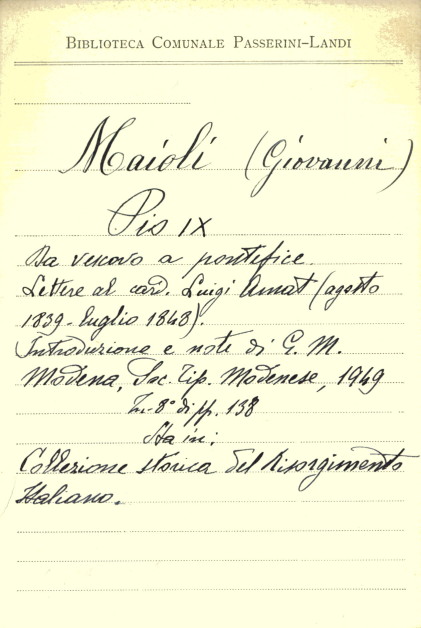 BIBLIOTECA COMUNALE PASSERINI-LANDI
Maioli (Giovanni)
Pio IX
Da vescovo a pontefice.
Lettere al card. Luigi Amat (agosto
1839 - luglio 1848).
(Introduzione e note di G. M.
Modena, Soc. Tip. Modenese, 1949
In-8° di pp. 138
Sta in:
Collezione storica del Risorgimento
Italiano.